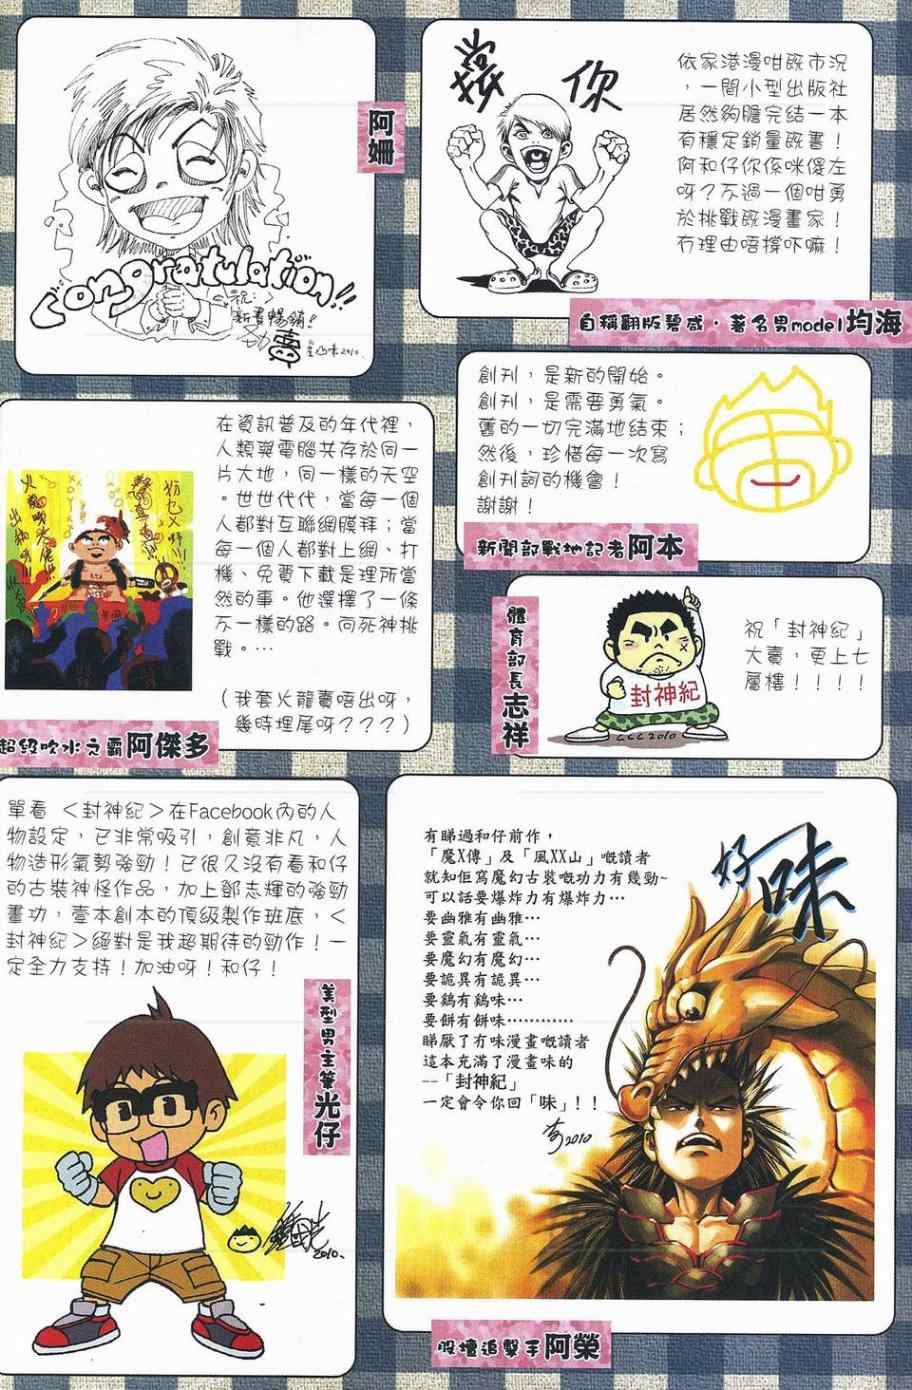 阿姍
Congratulation!!
祝:
新書暢銷!
2010.
撐你
依家港漫咁既市況
，一間小型出版社
居然夠膽完結一本
有穩定銷量既書！
何和仔你係咪傻左
呀？不過一個咁勇
於挑戰既漫畫家！
冇理由唔撐吓嘛！
自稱翻版碧咸．著名男model均海
創刊，是新的開始。
創刊，是需要勇氣。
舊的一切完滿地結束；
然後，珍惜每一次寫
創刊詞的機會！
謝謝！
新聞部戰地記者阿本
在資訊普及的年代裡，
人類與電腦共存於同一
片大地，同一樣的天空
。世世代代，當每一個
人都對互聯網膜拜；當
每一個人都對上網、打
機、免費下載是理所當
然的事。他選擇了一條
不一樣的路。向死神挑
戰。…
（我套火龍賣唔出呀，
幾時埋尾呀？？？）
超級吹水之霸阿傑多
體育部長志祥
封神紀
CCC2010
祝「封神紀」
大賣，更上七
層樓！！！！
單看＜封神紀＞在Facebook內的人
物設定，已非常吸引，創意非凡，人
物造形氣勢強勁！已很久沒有看和仔
的古裝神怪作品，加上鄭志輝的強勁
畫功，壹本創本的頂級製作班底，＜
封神紀＞絕對是我超期待的勁作！一
定全力支持！加油呀！和仔！
美型男主筆光仔
2010.
好味
有睇過和仔前作，
「魔X傳」及「風XX山」嘅讀者
就知佢寫魔幻古裝嘅功力有幾勁~
可以話要爆炸力有爆炸力…
要幽雅有幽雅…
要靈氣有靈氣…
要魔幻有魔幻…
要詭異有詭異…
要鷄有鷄味…
要餅有餅味…………
睇厭了冇味漫畫嘅讀者
這本充滿了漫畫味的
--「封神紀」
一定會令你回「味」！！
2010
股壇追擊手阿榮